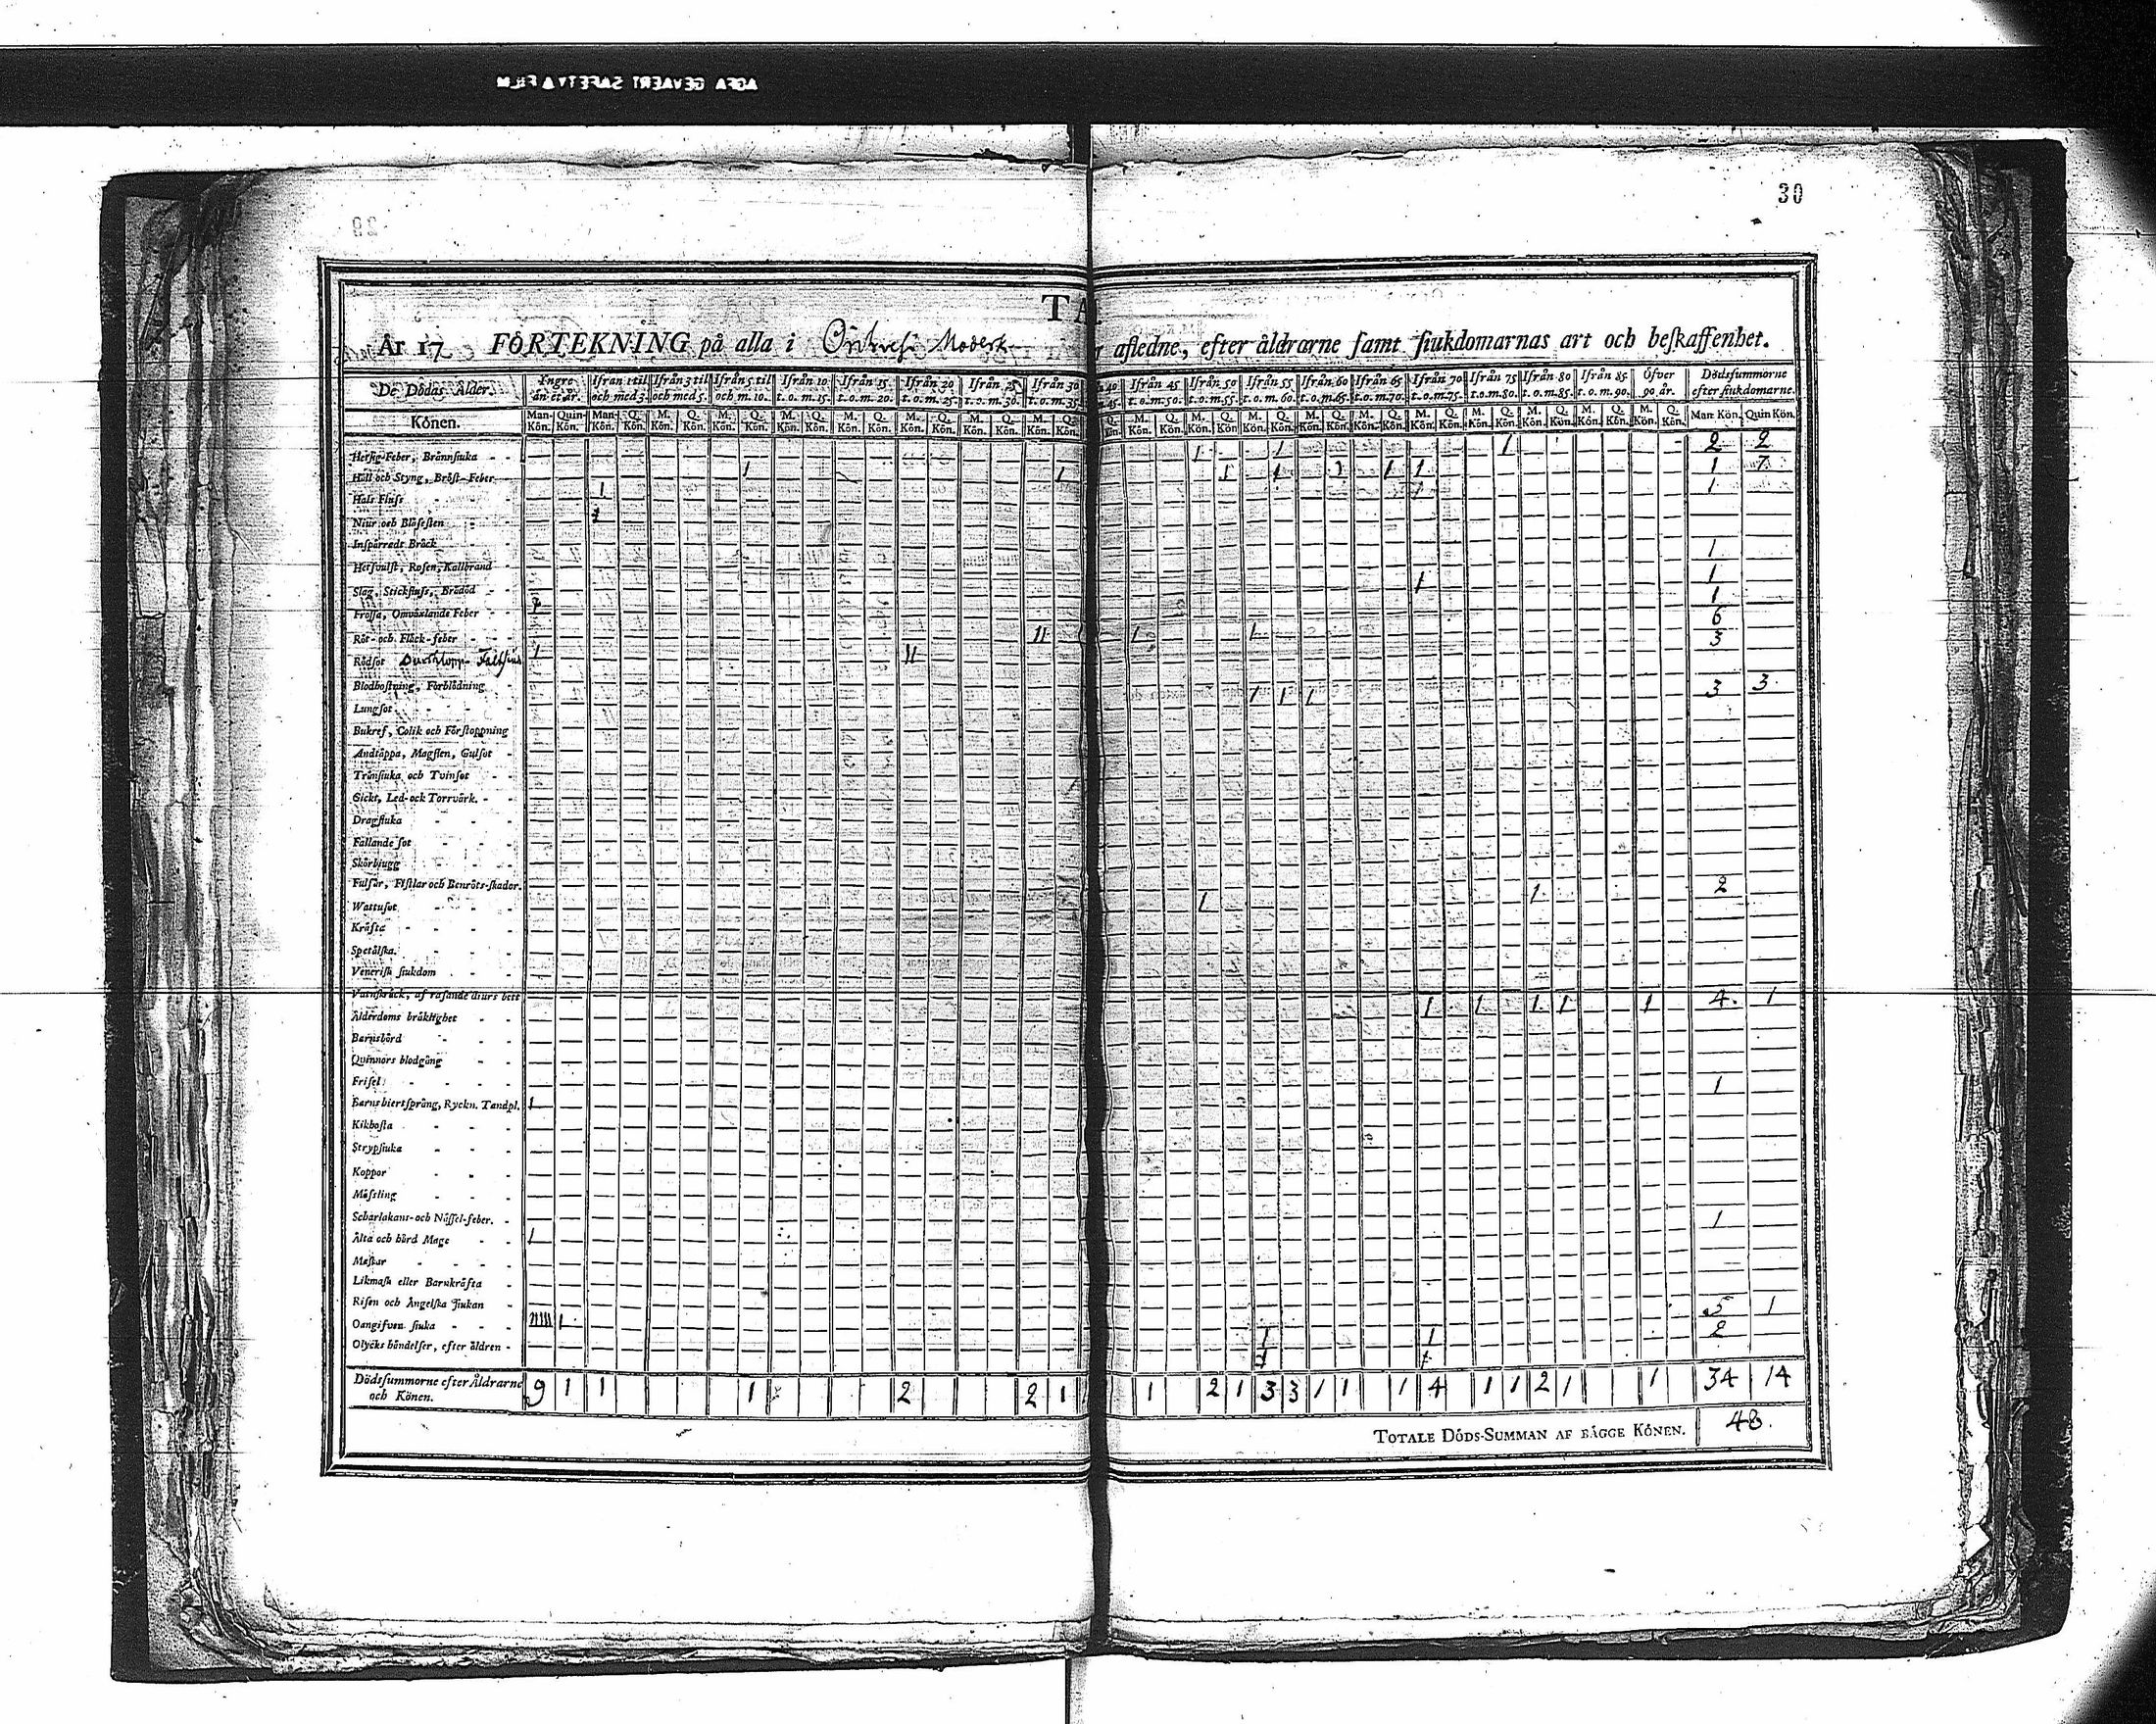 30
TA
År 17 FÖRTEKNING på alla i
afledne, efter åldrarne samt siukdomarnas art och beskaffenhet.
De Dödas Ålder. Yngre än et år. Ifrån 1 til och med 3. Ifrån 3 til och med 5. Ifrån 5 til och m. 10. Ifrån 10 t. o. m. 15. Ifrån 15 t. o. m. 20. Ifrån 20 t. o. m. 25. Ifrån 25 t. o. m. 30. Ifrån 30 t. o. m. 35. Ifrån 45 t. o. m. 50. Ifrån 50 t. o. m. 55. Ifrån 55 t. o. m. 60. Ifrån 60 t. o. m. 65. Ifrån 65 t. o. m. 70. Ifrån 70 t. o. m. 75. Ifrån 75 t. o. m. 80. Ifrån 80 t. o. m. 85. Ifrån 85 t. o. m. 90. Öfver 90 år. Dödssummorne efter siukdomarne.
Könen. Man Kön. Quin Kön.
Hetsig-Feber, Brännsiuka 1 1 1 2 2
Håll och Styng, Bröst-Feber 1 1 1 1 1 1 1 7
Hals Fluss 1 1
Niur och Blåsesten
Inspärradt Bråck
Hetsvulst, Rosen, Kallbrand 1
Slag, Stickfluss, Brådöd 1 1
Frossa, Omväxlande Feber 1
Röt- och Fläck-feber 11 1 1 6
Rödsot 1 11 3
Blodhostning, Förblödning
Lungsot 1 1 1 3 3
Bukref, Colik och Förstoppning
Andtäppa, Magsten, Gulsot
Trånsiuka och Tvinsot
Gickt, Led- och Torrvärk.
Dragsiuka
Fallande sot
Skörbiugg
Fulsår, Fistlar och Benröts-skador.
Wattusot 1 1 2
Kräfta
Spetälska.
Venerisk siukdom
Vatuskräck, af rasande diurs bett
Ålderdoms bräklighet 1 1 1 1 1 4 1
Barnsbörd
Quinnors blodgång
Frisel
Barns hiertsprång, Ryckn. Tandpl. 1 1
Kikhosta
Strypsiuka
Koppor
Mässling
Scharlakans- och Nässel-feber.
Älta och hård Mage 1 1
Maskar
Likmask eller Barnkräfta
Risen och Ängelska Siukan
Oangifven siuka 11111 1 5 1
Olycks händelser, efter åldren 1 1 2
Dödssummorne efter Åldrarne och Könen. 9 1 1 1 2 2 1 1 2 1 3 3 1 1 1 4 1 1 2 1 1 34 14
TOTALE DÖDS-SUMMAN AF BÄGGE KÖNEN. 48.